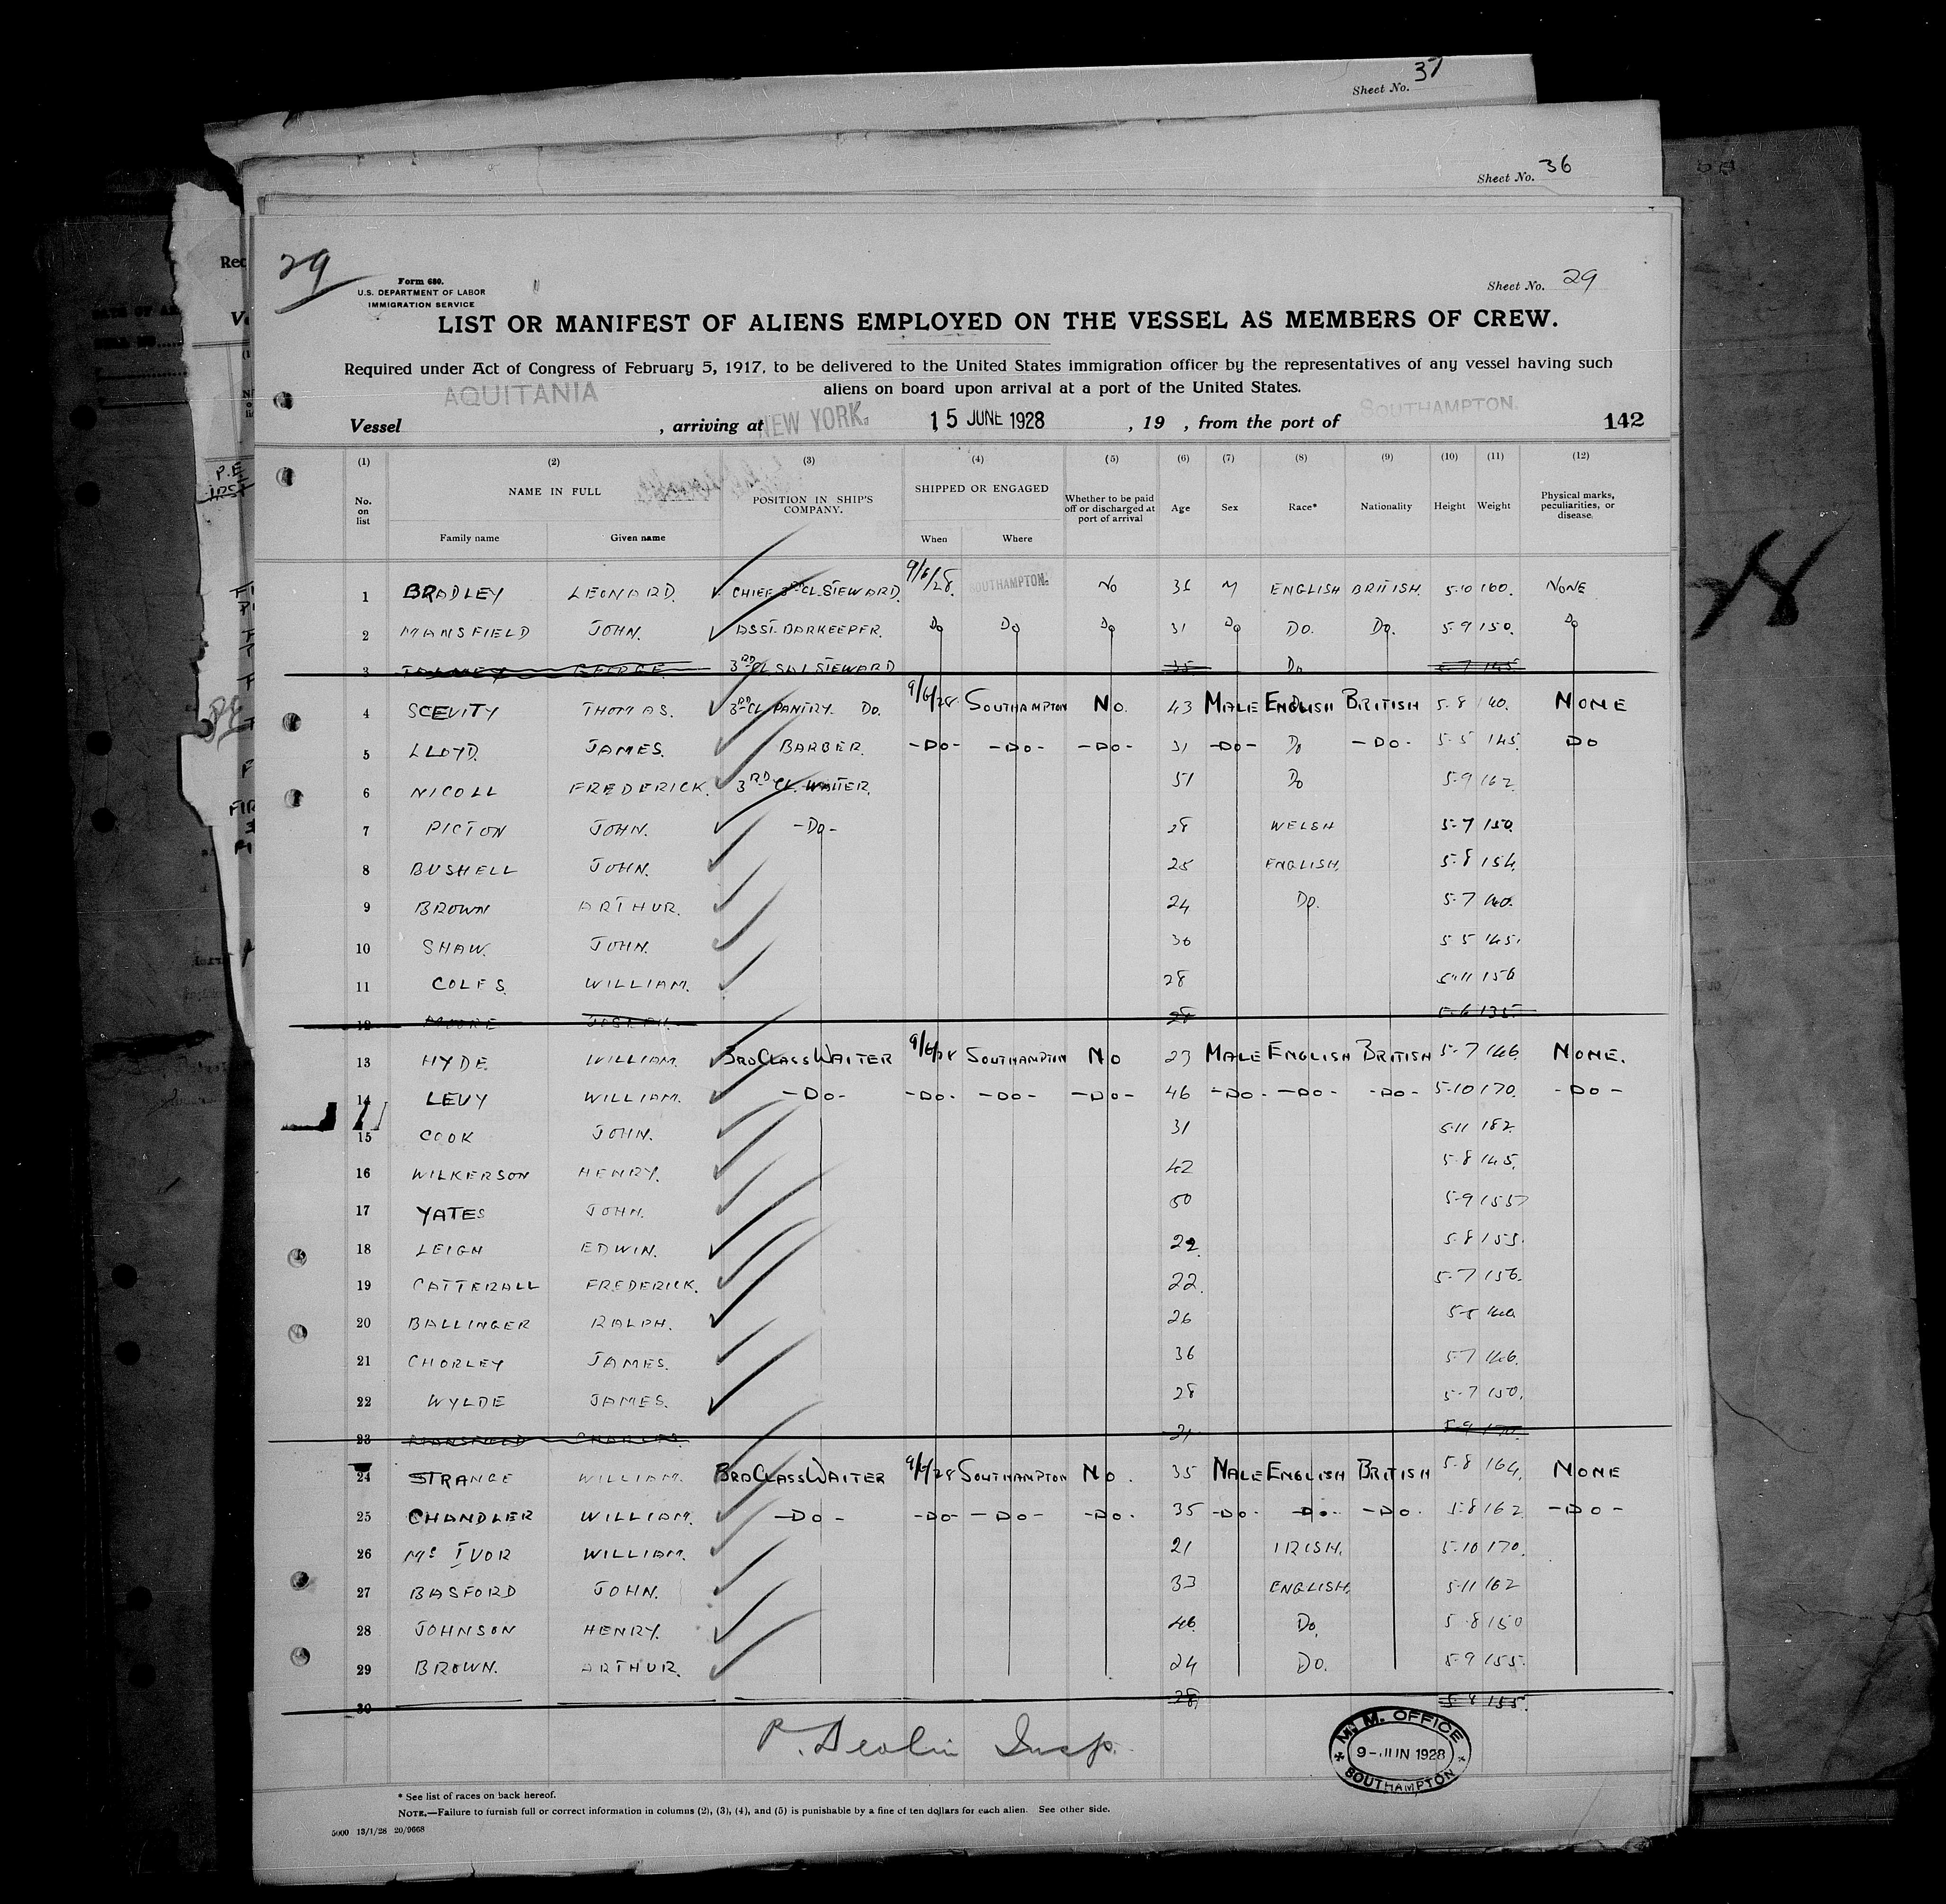 Sheet No. 37
Sheet No. 36
29
Form 680.
U.S. DEPARTMENT OF LABOR
IMMIGRATION SERVICE
Sheet No. 29
LIST OR MANIFEST OF ALIENS EMPLOYED ON THE VESSEL AS MEMBERS OF CREW.
Required under Act of Congress of February 5, 1917, to be delivered to the United States immigration officer by the representatives of any vessel having such
aliens on board upon arrival at a port of the United States.
Vessel AQUITANIA , arriving at NEW YORK. 15 JUNE 1928 , 19 , from the port of SOUTHAMPTON. 142
(1) (2) (3) (4) (5) (6) (7) (8) (9) (10) (11) (12)
No. on list NAME IN FULL POSITION IN SHIP'S COMPANY. SHIPPED OR ENGAGED Whether to be paid off or discharged at port of arrival Age Sex Race* Nationality Height Weight Physical marks, peculiarities, or disease.
Family name Given name When Where
1 BRADLEY LEONARD. CHIEF 3RD CL. STEWARD. 9/6/28. SOUTHAMPTON. No 36 M ENGLISH BRITISH. 5-10 160. NONE
2 MANSFIELD JOHN. ASST. BARKEEPER. Do Do Do 31 Do Do. Do. 5-9 150. Do
3 GEORGE 3RD CL SAL STEWARD 35 Do 5-7 145
4 SCEVITY THOMAS. 3RD CL PANTRY. Do. 9/6/28 SOUTHAMPTON No. 43 MALE ENGLISH BRITISH 5-8 140. NONE
5 LLOYD. JAMES. BARBER. -Do- -Do- -Do- 31 -Do- Do -Do- 5-5 145. Do
6 NICOLL FREDERICK. 3RD CL. WAITER. 51 Do 5-9 162.
7 PICTON JOHN. -Do- 28 WELSH 5-7 150.
8 BUSHELL JOHN. 25 ENGLISH. 5-8 154.
9 BROWN ARTHUR. 24 Do. 5-7 140.
10 SHAW. JOHN. 36 5 5 145.
11 COLES. WILLIAM. 28 5-11 156
12 MOORE JOSEPH. 28 5-6 135.
13 HYDE. WILLIAM. 3RD CLASS WAITER 9/6/28 SOUTHAMPTON NO 23 MALE ENGLISH BRITISH 5-7 146. NONE.
14 LEVY WILLIAM. -Do- -Do- -Do- -Do- 46 -Do- -Do- -Do- 5-10 170. -Do-
15 COOK JOHN. 31 5-11 182.
16 WILKERSON HENRY. 42 5-8 145.
17 YATES JOHN. 50 5-9 155
18 LEIGH EDWIN. 22. 5-8 155.
19 CATTERALL FREDERICK. 22. 5-7 156.
20 BALLINGER RALPH. 26 5-5 140
21 CHORLEY JAMES. 36 5-7 146.
22 WYLDE JAMES. 28 5-7 150.
23 MANSFIELD CHARLES. 21 5-9
24 STRANGE WILLIAM. 3RD CLASS WAITER 9/6/28 SOUTHAMPTON NO. 35 MALE ENGLISH BRITISH 5-8 164. NONE
25 CHANDLER WILLIAM. -Do- -Do- -Do- -Do. 35 -Do. -Do.- -Do. 5-8 162. -Do-
26 Mc IVOR WILLIAM. 21 IRISH. 5-10 170.
27 BASFORD JOHN. 33 ENGLISH. 5-11 162
28 JOHNSON HENRY. 46. Do. 5-8 150
29 BROWN. ARTHUR. 24 Do. 5-9 155.
30 28. 5-9 155.
P. Devlin Insp.
M. M. OFFICE
9-JUN 1928
SOUTHAMPTON
* See list of races on back hereof.
NOTE.—Failure to furnish full or correct information in columns (2), (3), (4), and (5) is punishable by a fine of ten dollars for each alien. See other side.
5000 13/1/28 20/9668